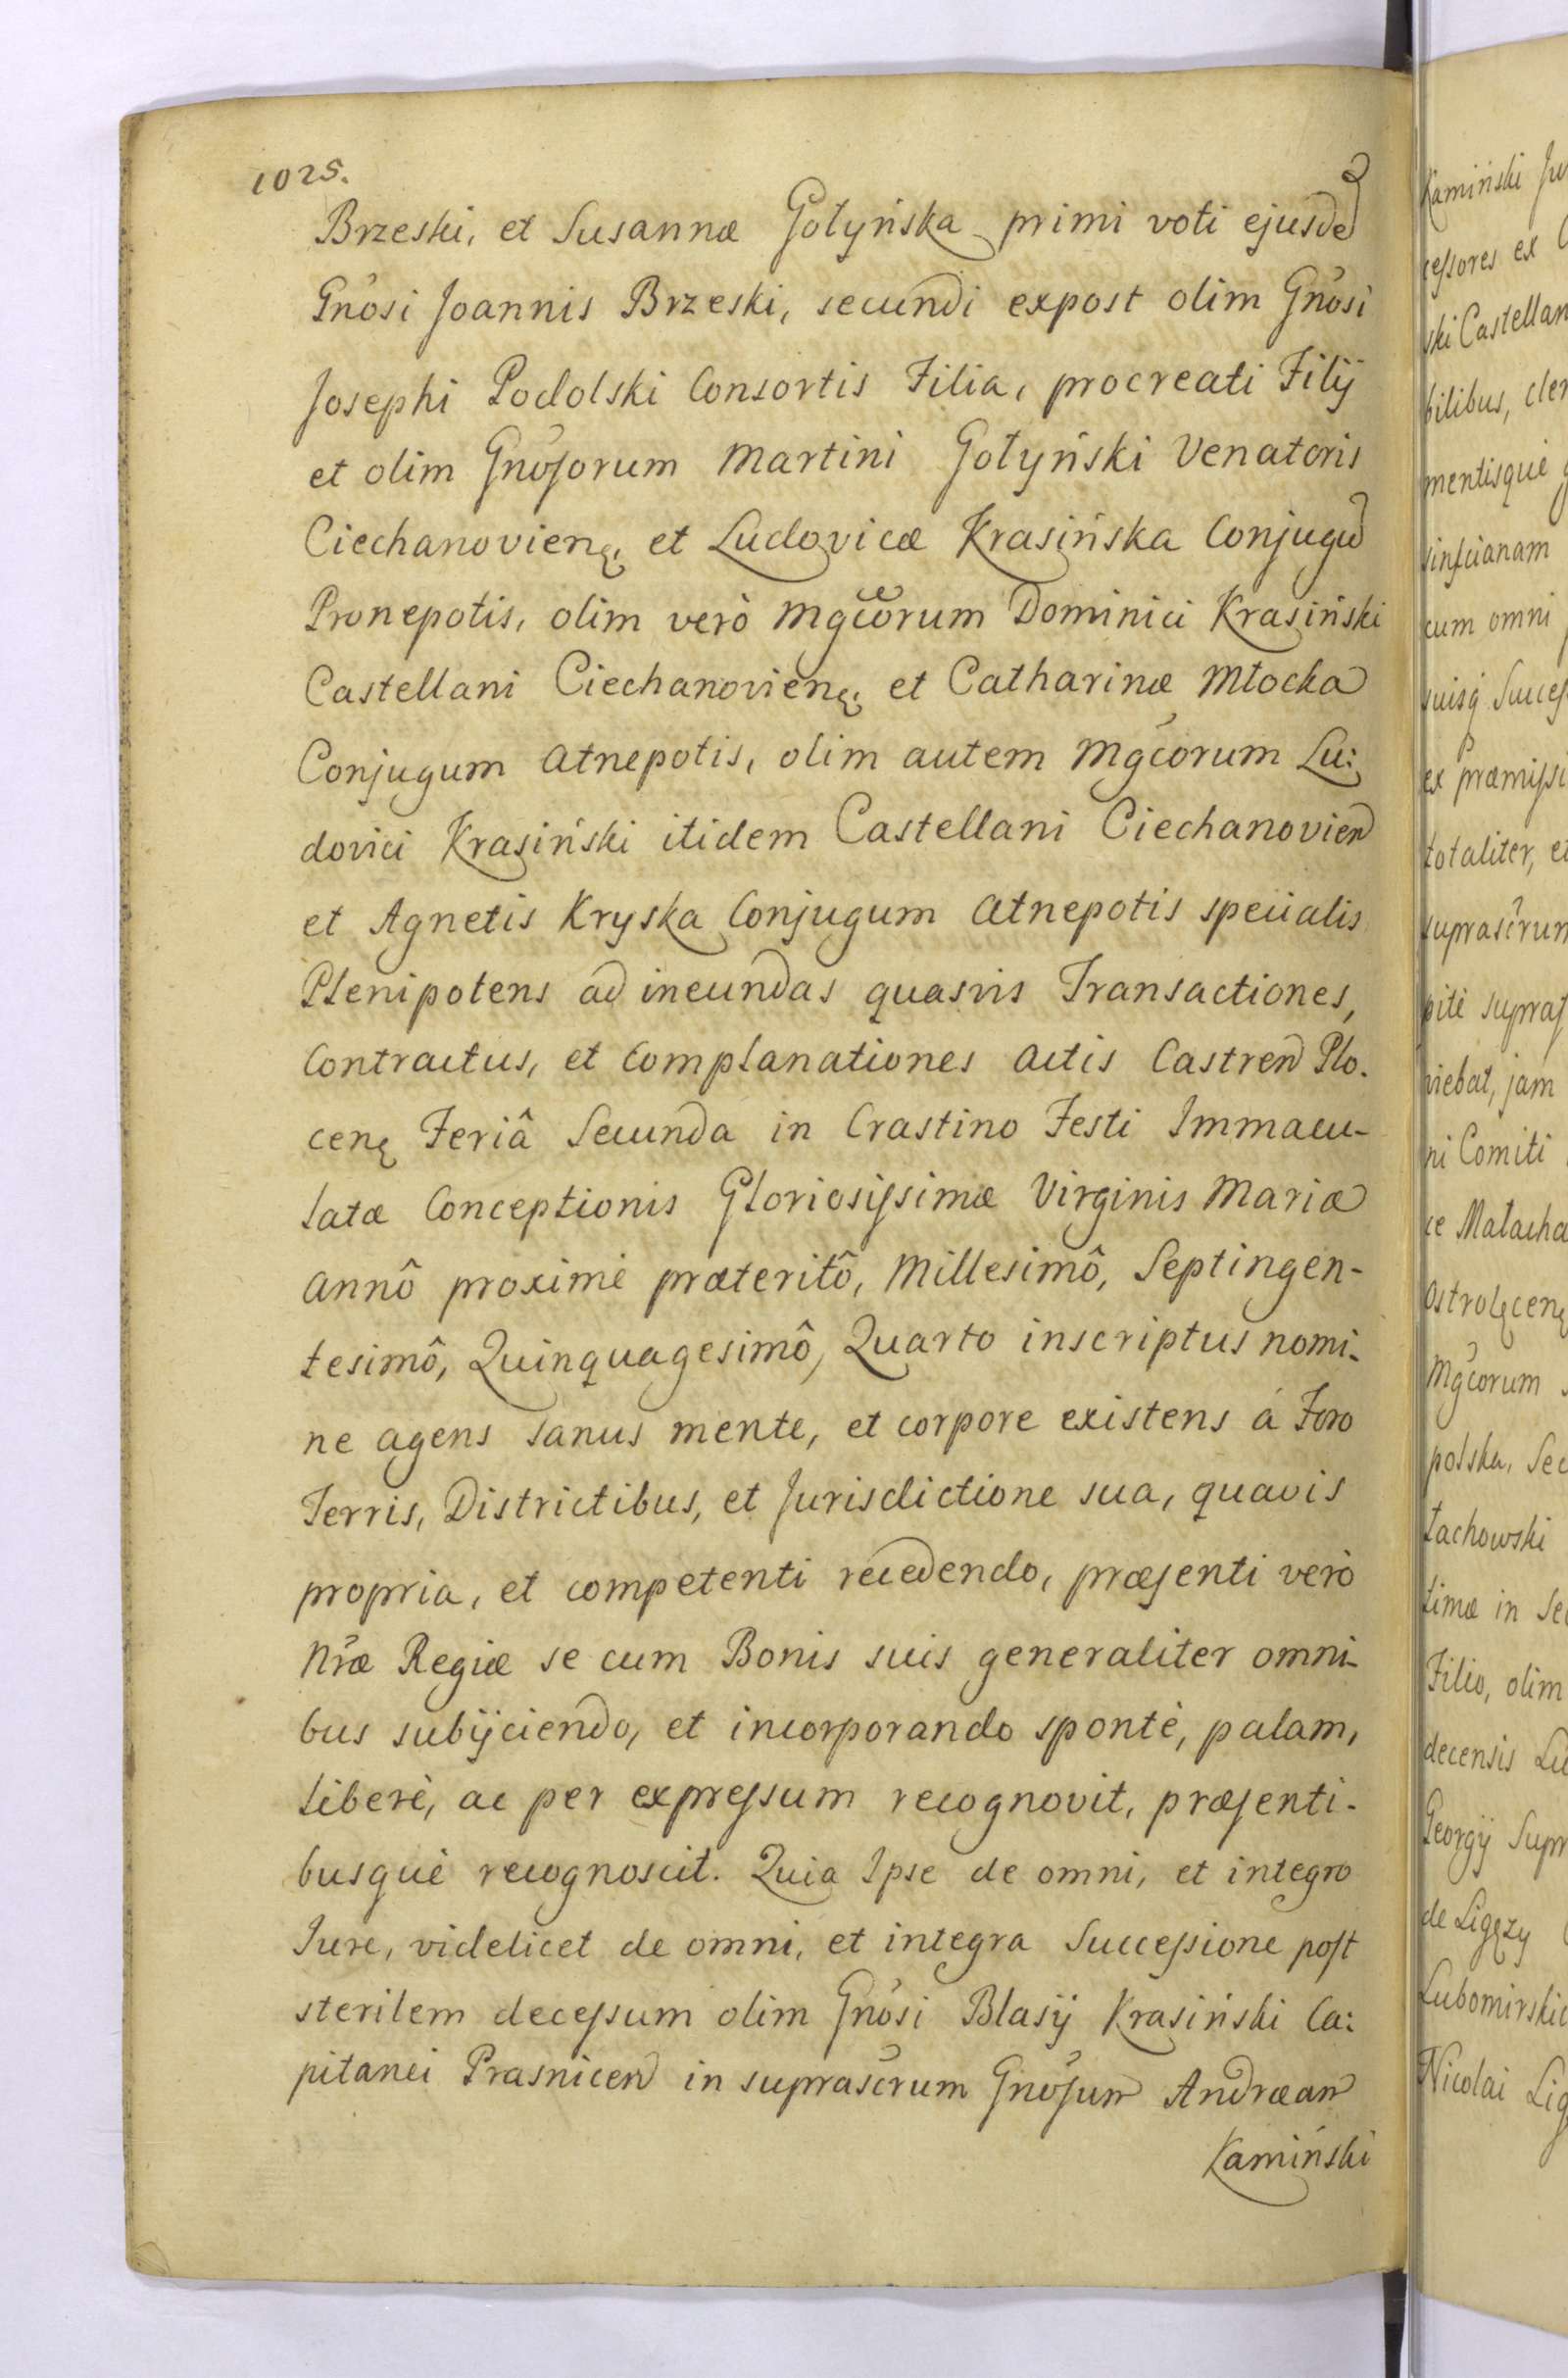 1025.
Brzeski, et Susannæ Gołyńska primi voti ejusde
Gnosi Joannis Brzeski, secundi expost olim Gnosi
Josephi Podolski Consortis Filia, procreati Filij
et olim Gnosorum Martini Gołyński Venatoris
Ciechanovienę, et Ludovicæ Krasińska Conjugu
Pronepotis, olim verò Mgcorum Dominici Krasiński
Castellani Ciechanovienę, et Catharinæ Młocka
Conjugum Atnepotis, olim autem Mgcorum Lu:
dovici Krasiński itidem Castellani Ciechanovien
et Agnetis Kryska Conjugum Atnepotis specialis
Plenipotens ad ineundas quasvis Transactiones,
Contractus, et Complanationes Actis Castren Plo.
cenę Feriâ Secunda in Crastino Festi Immacu-
latæ Conceptionis Gloriosissimæ Virginis Mariæ
Annô proximè præteritô, Millesimô, Septingen-
tesimô, Quinquagesimô, Quarto inscriptus nomi-
ne agens sanus mente, et corpore existens á Foro
Terris, Districtibus, et Jurisdictione sua, quavis
propria, et competenti recedendo, præsenti verò
Nræ Regiæ se cum Bonis suis generaliter omni-
bus subijciendo, et incorporando spontè, palam,
liberè, ac per expressum recognovit, præsenti-
busquè recognoscit. Quia Ipse de omni, et integro
Jure, videlicet de omni, et integra Successione post
sterilem decessum olim Gnosi Blasij Krasiński Ca:
pitanei Prasnicen in suprascrum Gnosum Andræam
Kamiński
Kamiński
cessores ex
ski Castellan
bilibus,
mentisquè
cum omni
suisq Succes
ex præmissi
totaliter, et
suprascrum
viebat, jam
ni Comiti
ce Małacho
Ostrołęcenę
Mgcorum
polska, Sec
łachowski
timæ in Se
Filio, olim
decensis Lu
Georgij Supr
de Ligęzy
Lubomirskic
Nicolai Lig